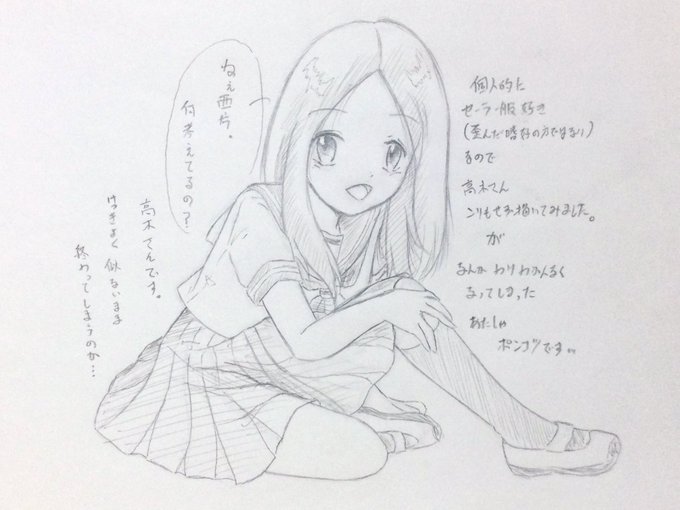 ねぇ西片。
何考えてるの？
個人的に
セーラー服好き
(歪んだ嗜好の方ではない)
なので
高木さん
こりもせず描いてみました。
が
なんか わりわかんなく
なってしまった
あたしゃ
ポンコツです。。
高木さんです。
けっきょく 似ないまま
終わってしまうのか…